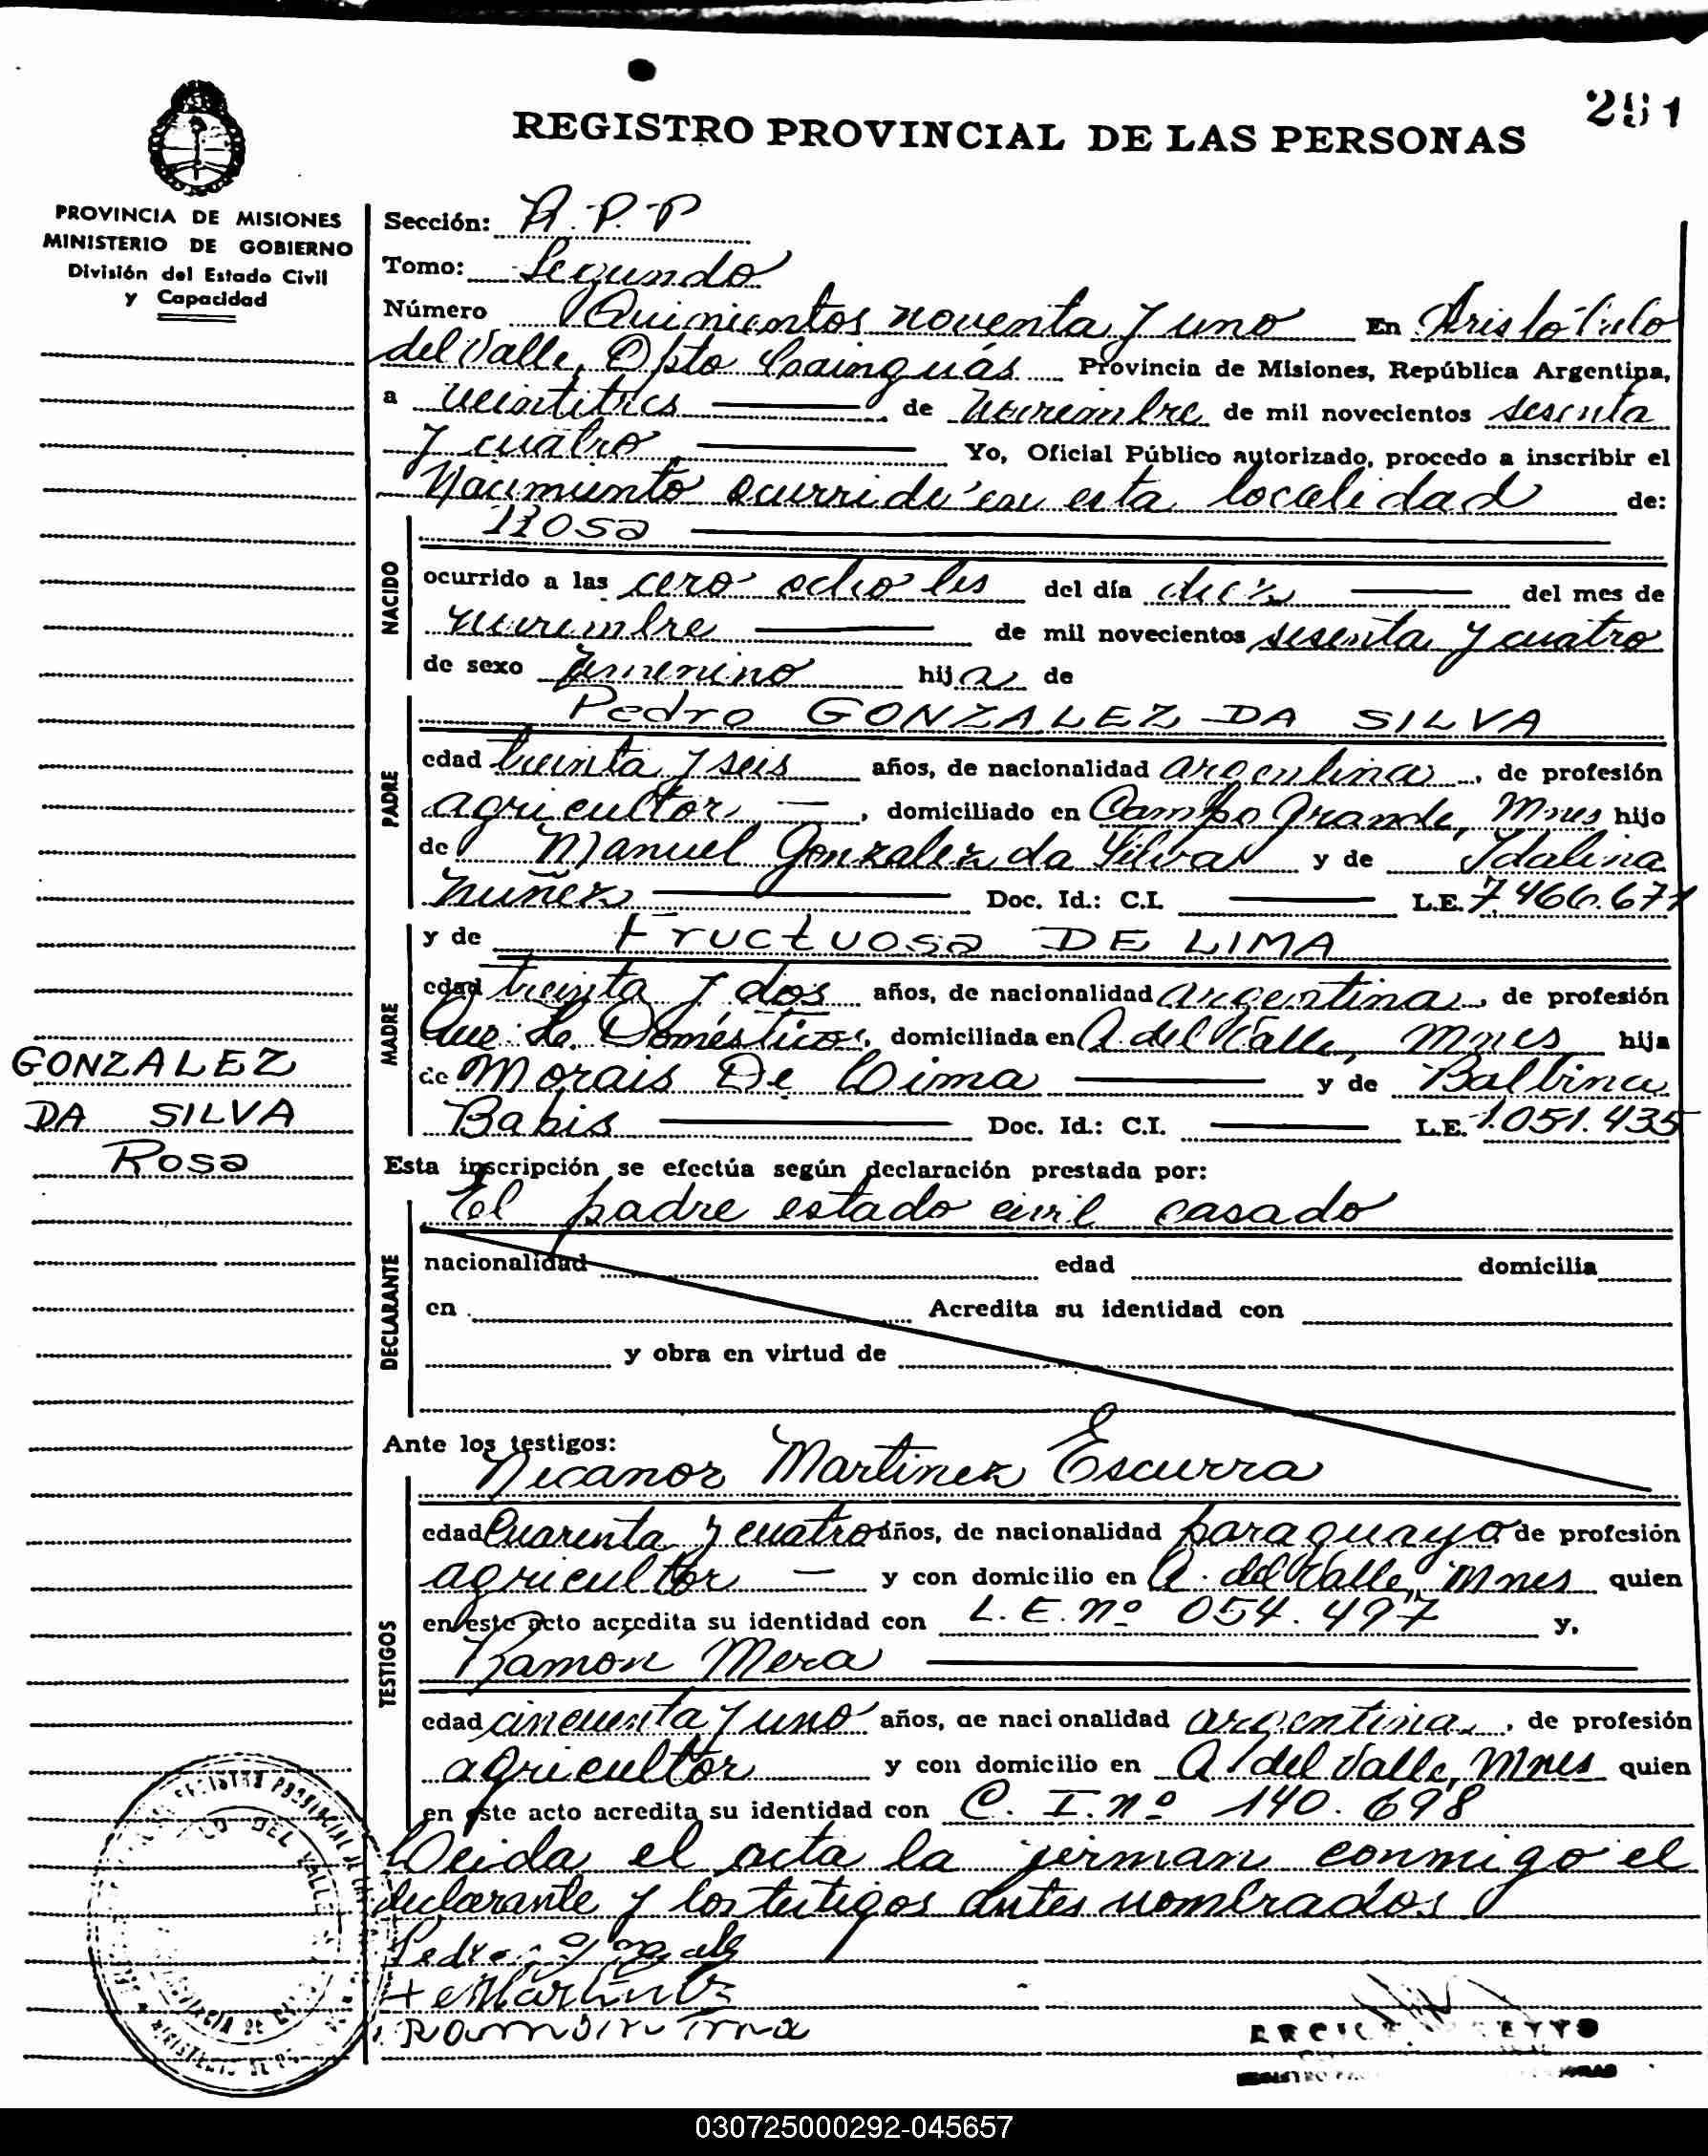 291
REGISTRO PROVINCIAL DE LAS PERSONAS
PROVINCIA DE MISIONES
MINISTERIO DE GOBIERNO
División del Estado Civil
y Capacidad
Sección: R.P.P
Tomo: Segundo
Número Quinientos noventa y uno En Aristóbulo
del Valle, Dpto Cainguás Provincia de Misiones, República Argentina,
a veintitres de noviembre de mil novecientos sesenta
y cuatro Yo, Oficial Público autorizado, procedo a inscribir el
Nacimiento ocurrido en esta localidad de:
NACIDO
Rosa
ocurrido a las cero ocho hs del día diez del mes de
noviembre de mil novecientos sesenta y cuatro
de sexo femenino hija de
PADRE
Pedro GONZALEZ DA SILVA
edad treinta y seis años, de nacionalidad argentina, de profesión
agricultor, domiciliado en Campo Grande, Mnes hijo
de Manuel Gonzalez da Silva y de Idalina
Nuñez Doc. Id.: C.I. L.E. 7.466.671
MADRE
y de Fructuosa DE LIMA
edad treinta y dos años, de nacionalidad argentina, de profesión
Que. Ho. Domésticos, domiciliada en A. del Valle, Mnes hija
de Morais De Lima y de Balbina
Babis Doc. Id.: C.I. L.E. 1.051.435
GONZALEZ
DA SILVA
Rosa
Esta inscripción se efectúa según declaración prestada por:
DECLARANTE
El padre estado civil casado
nacionalidad edad domicilia
en Acredita su identidad con
y obra en virtud de
Ante los testigos:
TESTIGOS
Nicanor Martinez Escurra
edad Cuarenta y cuatro años, de nacionalidad paraguaya de profesión
agricultor y con domicilio en A. del Valle, Mnes quien
en este acto acredita su identidad con L.E. nº 054.497 y,
Ramón Mera
edad cincuenta y uno años, de nacionalidad argentina, de profesión
agricultor y con domicilio en A. del Valle, Mnes quien
en este acto acredita su identidad con C.I. nº 140.698
Leida el acta la firman conmigo el
declarante y los testigos antes nombrados
Pedro
Ramon
030725000292-045657